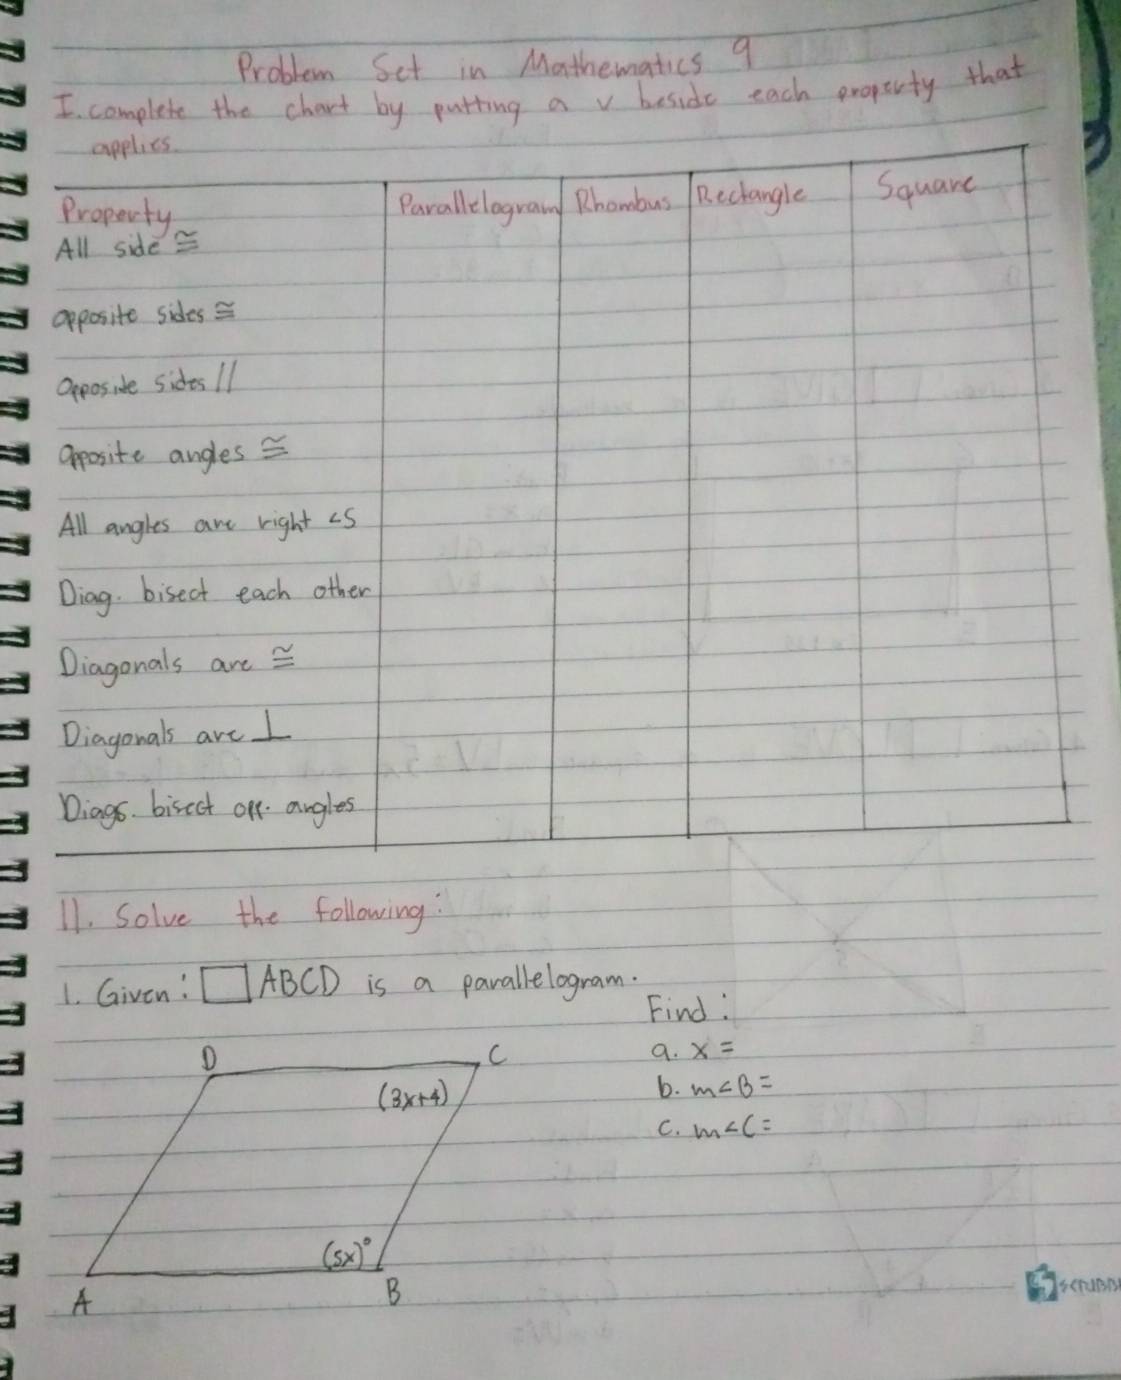 Problem Set in Mathematics 9
I. complete the chart by putting a v beside each property that
applies.
Property Parallelogram Rhombus Rectangle Square
All side ≅
opposite sides ≅
Opposite sides //
Opposite angles ≅
All angles are right <S
Diag. bisect each other
Diagonals are ≅
Diagonals are ⊥
Diags. bisect opp. angles
II. Solve the following:
1. Given: □ ABCD is a parallelogram.
Find:
D C
(3x+4)
a. x =
b. m<B=
c. m<C=
(5x)°
A B